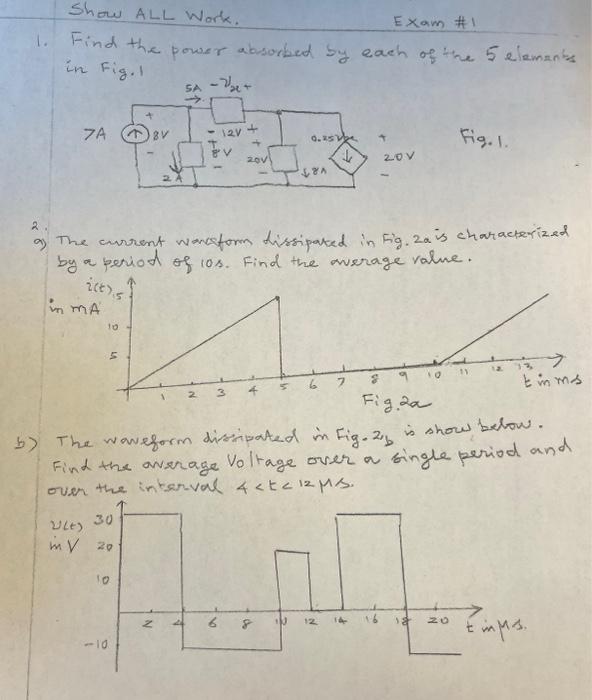 Show ALL Work.
Exam #1
1. Find the power absorbed by each of the 5 elements
in Fig.1
5A - Vx +
7A
+
8V
-
- 12V +
+
8V
-
2A
+
20V
-
↓8A
0.25Vx
+
20V
-
Fig.1.
2.
a) The current waveform dissipated in Fig. 2a is characterized
by a period of 10s. Find the average value.
i(t)
in mA
15
10
5
1 2 3 4 5 6 7 8 9 10 11 12 13
t in ms
Fig.2a
b) The waveform dissipated in Fig.2b is show below.
Find the average Voltage over a single period and
over the interval 4<t<12 μs.
v(t)
in V
30
20
10
-10
2 4 6 8 10 12 14 16 18 20
t in μs.